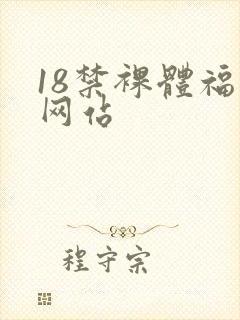 18禁裸體福
网站
程守宗